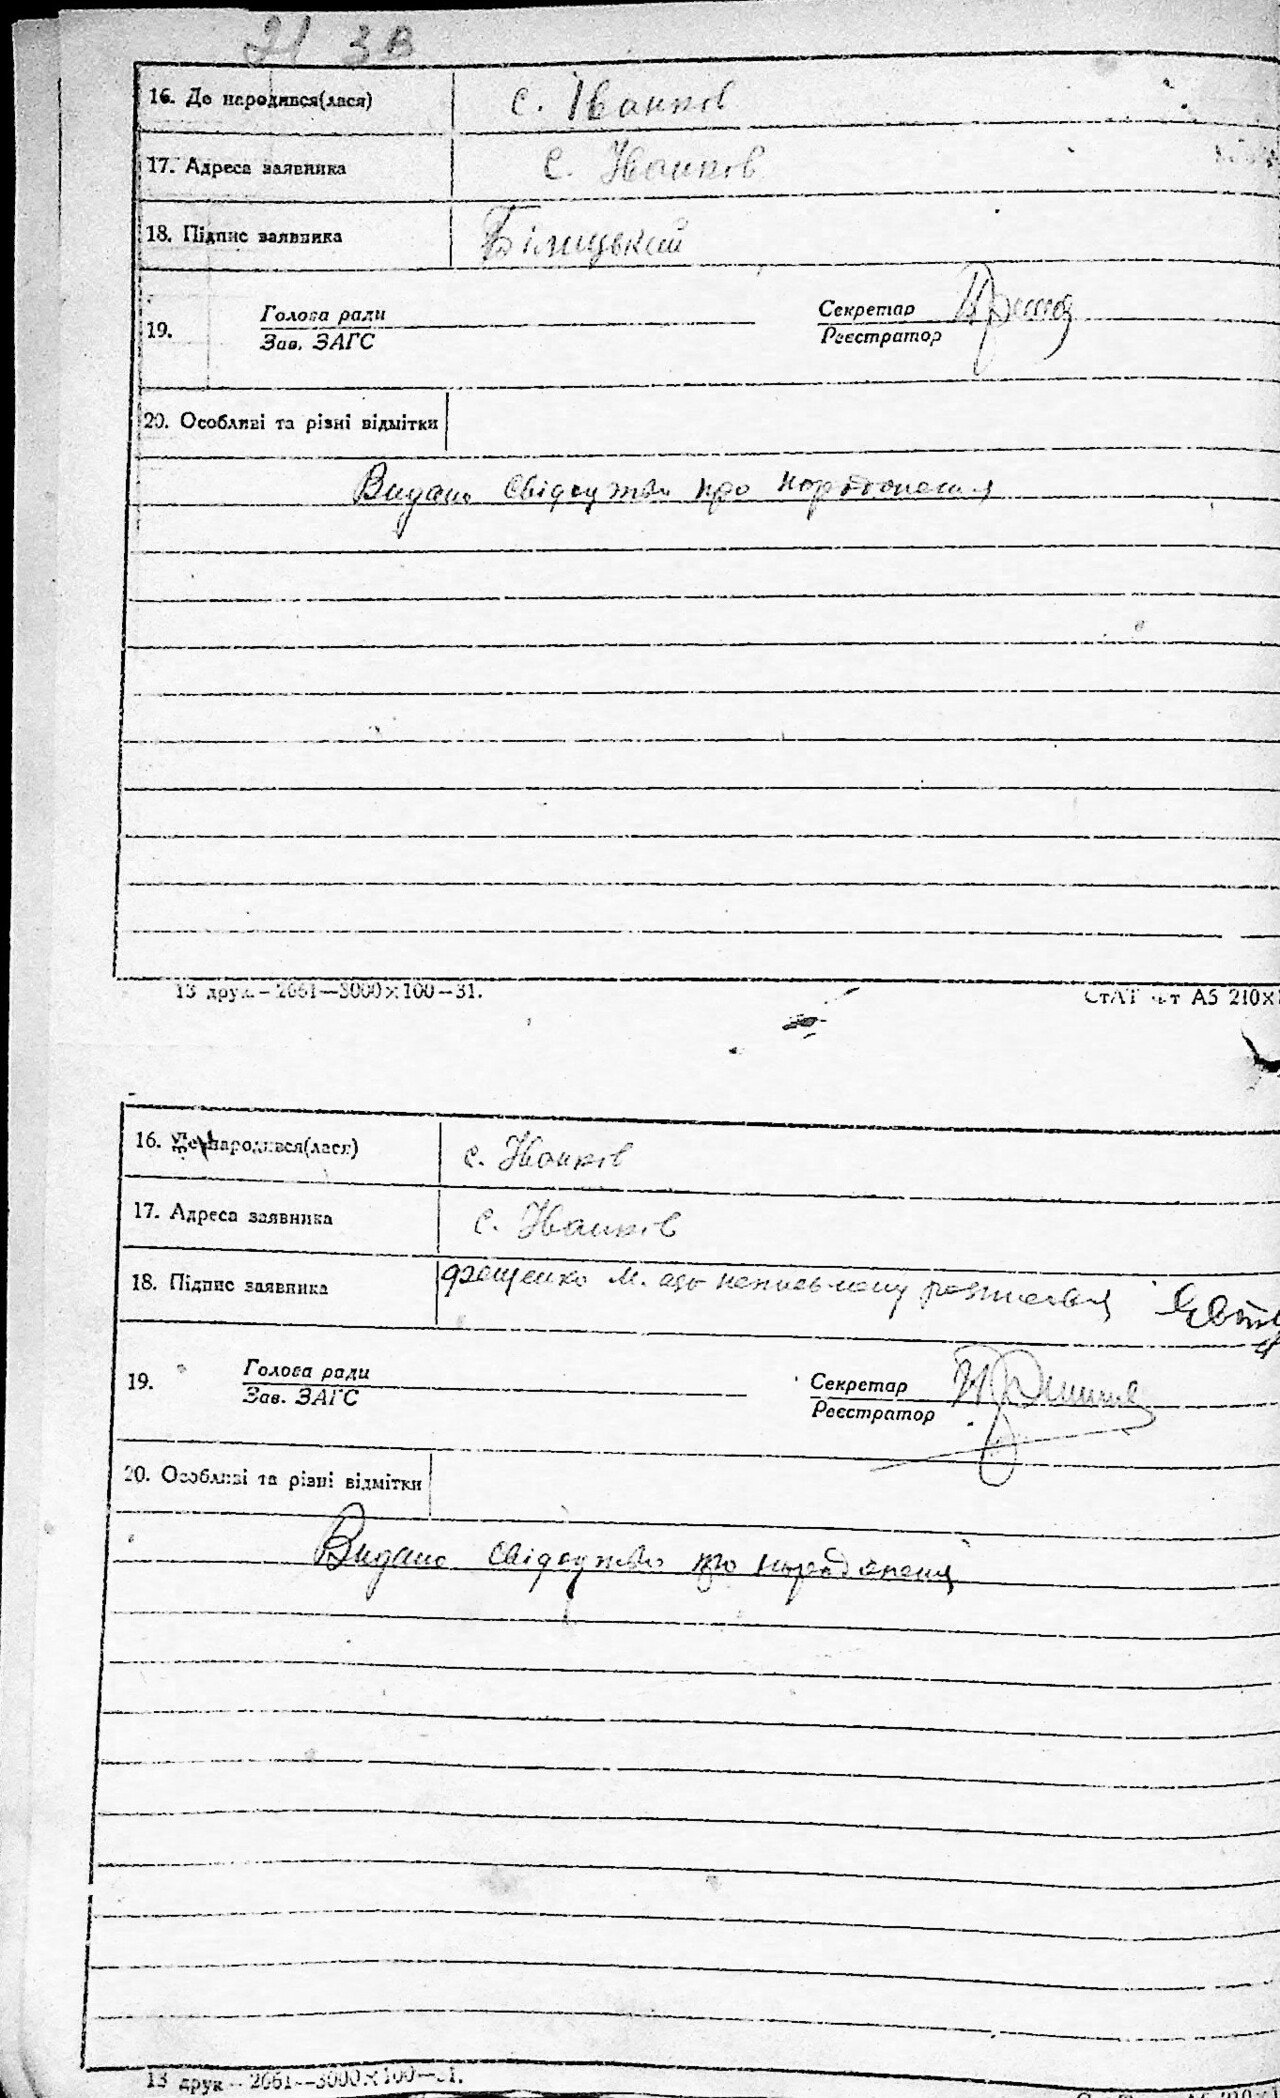 21 зв
16. Де народився(лася) с. Іванков
17. Адреса заявника с. Іванков
18. Підпис заявника Білицький
19. Голова ради Секретар
Зав. ЗАГС Реєстратор
20. Особливі та різні відмітки
Видано свідоцтво про народження
13 друк.—2661—3000×100—31. СтАТ ф-т А5 210×
16. Де народився(лася) с. Іванків
17. Адреса заявника с. Іванків
18. Підпис заявника М. що неписьмену розписався
19. Голова ради Секретар
Зав. ЗАГС Реєстратор
20. Особливі та різні відмітки
Видано свідоцтво про народження
13 друк.—2661—3000×100—31.